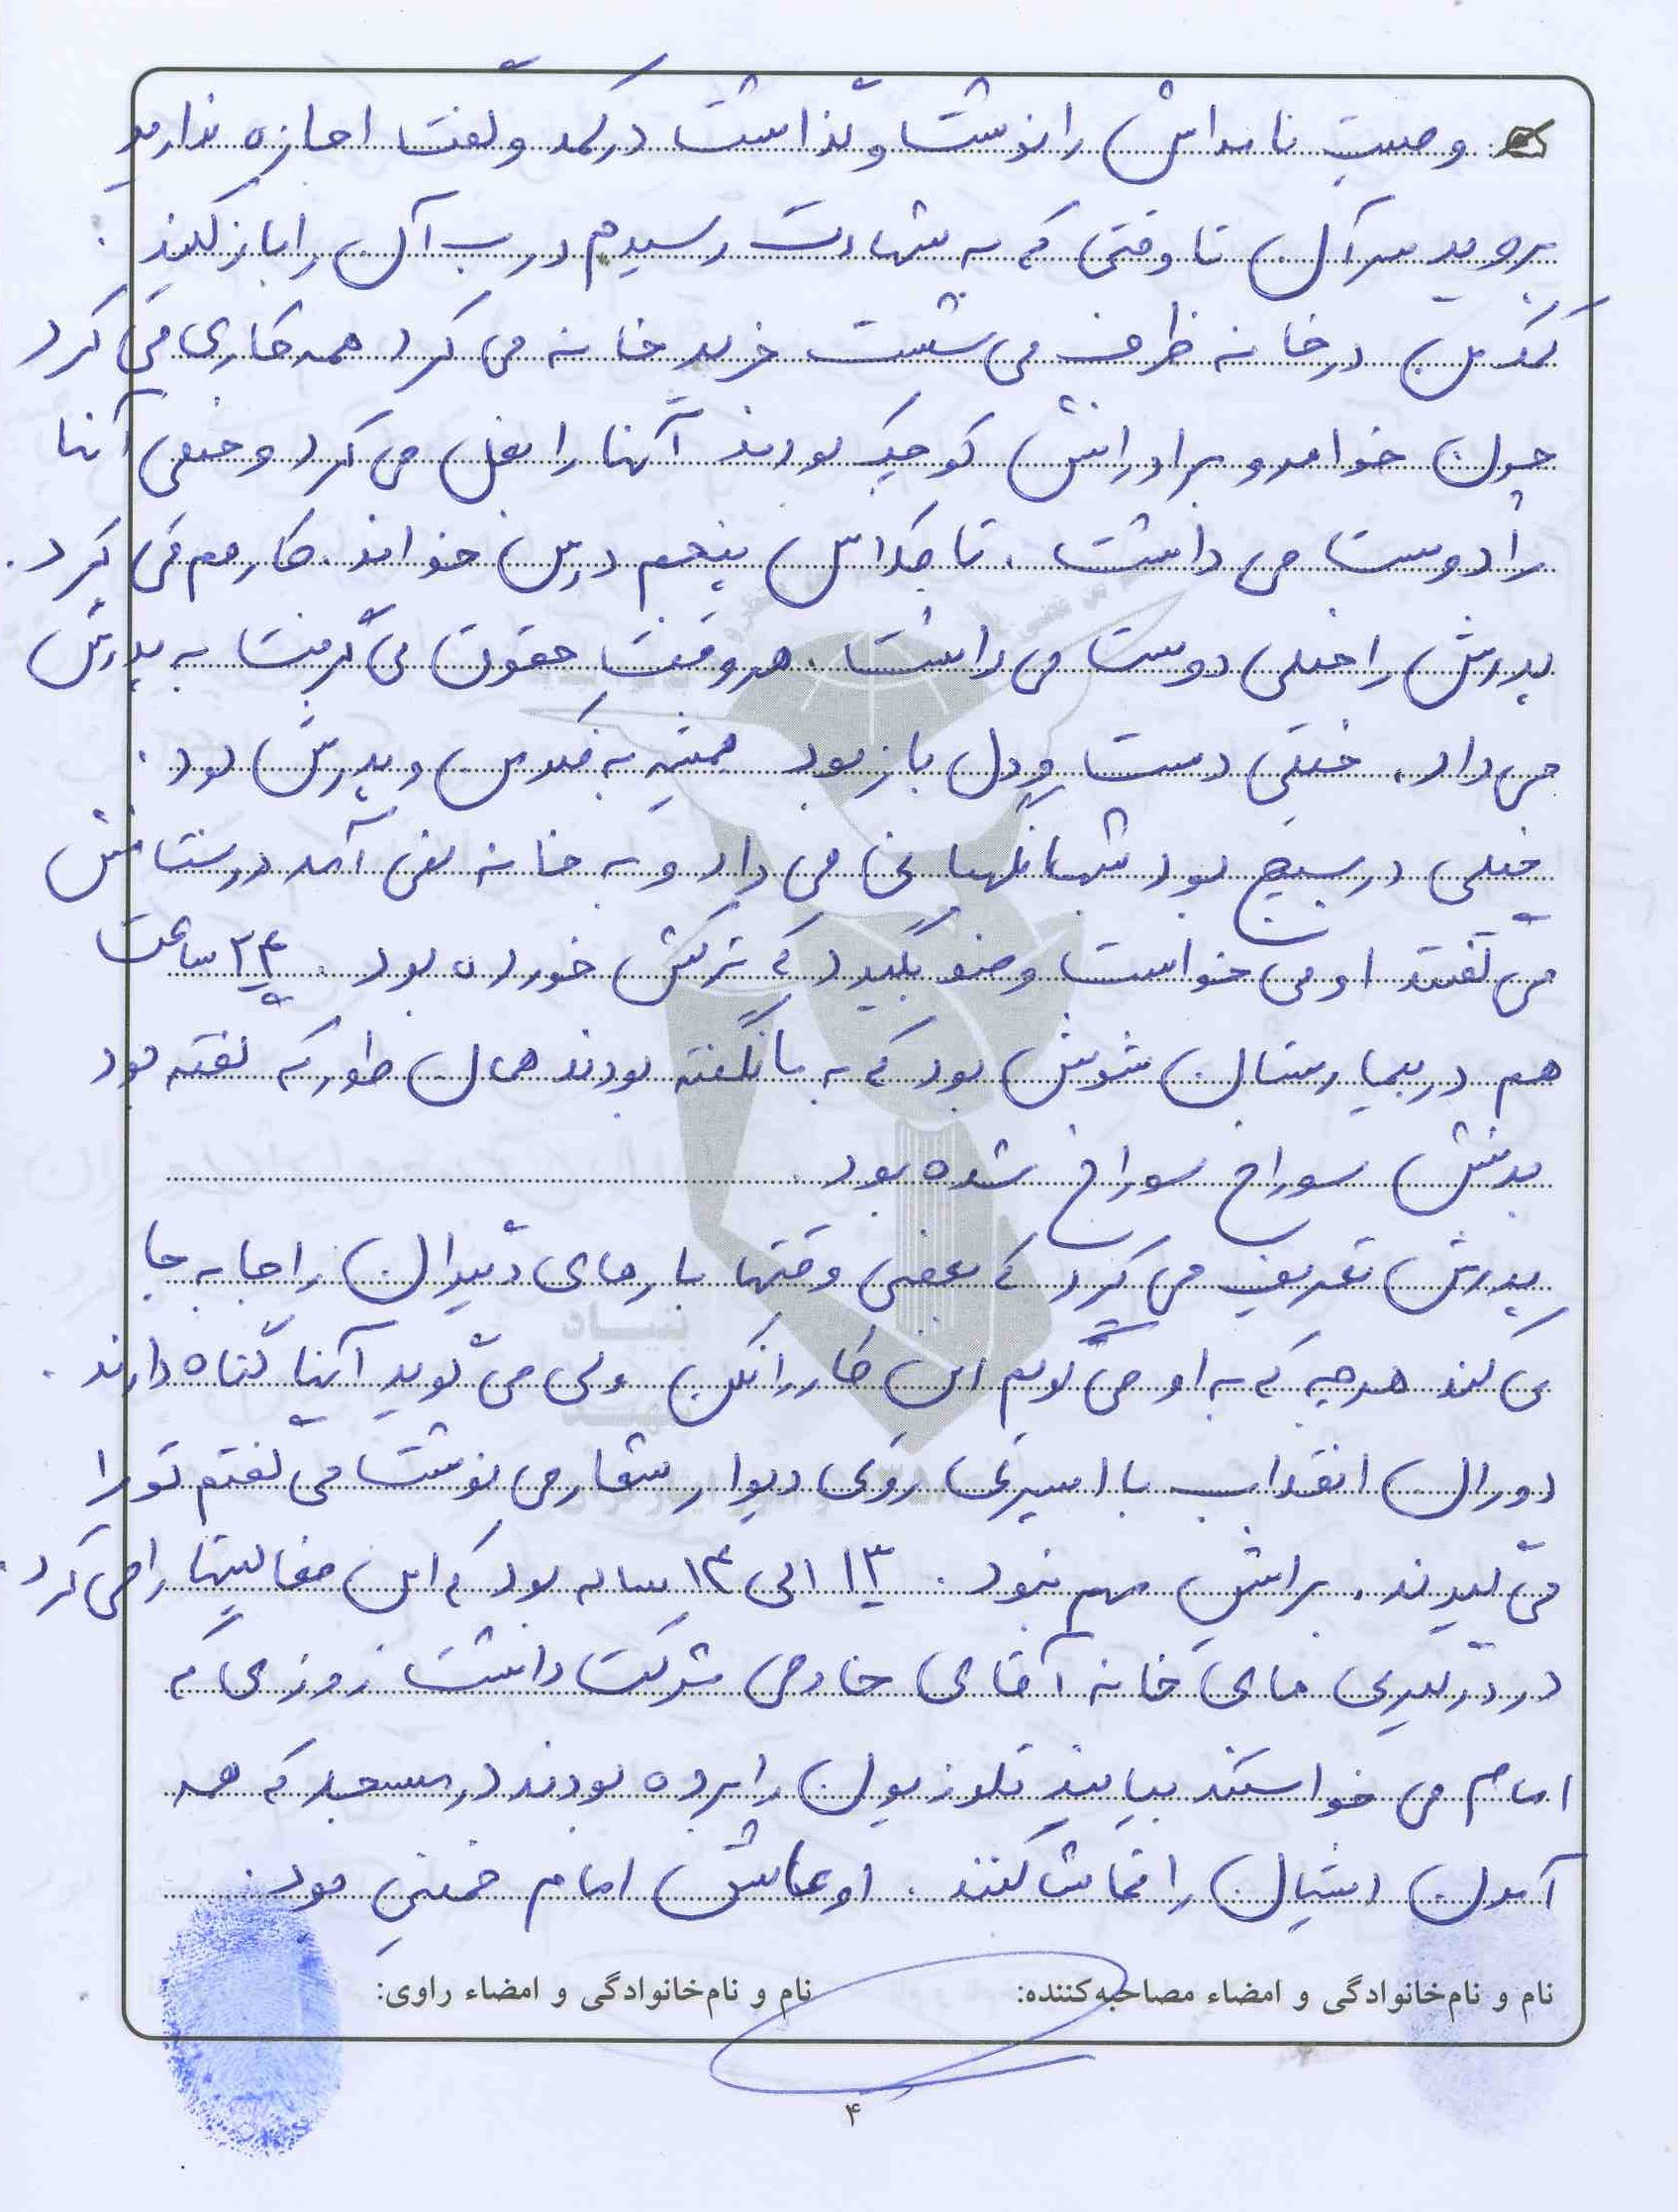 وصیت نامه اش را نوشت و گذاشت در کمد و گفت اجازه ندارید
بروید سر آن تا وقتی که به شهادت رسیدم درب آن را باز کنید.
در خانه ظرف می شست خرید خانه می کرد همه کاری می کرد
چون خواهر و برادرانش کوچک بودند آنها را بغل می کرد و خیلی آنها
را دوست می داشت. تا کلاس پنجم درس خواند. کار هم می کرد.
پدرش را خیلی دوست می داشت. هر وقت حقوق می گرفت به پدرش
می داد. خیلی دست و دل باز بود همیشه به فکر من و پدرش بود.
خیلی در بسیج بود شبها نگهبانی می داد و به خانه نمی آمد دوستانش
می گفتند او می خواست وضو بگیرد که ترکش خورده بود. ۲۴ ساعت
هم در بیمارستان شوش بود که به ما نگفته بودند همان طور که گفته بود
بدنش سوراخ سوراخ شده بود.
پدرش تعریف می کرد که بعضی وقتها بارهای دیگران را جا به جا
می کند هرچه که به او می گویم این کار را نکن ولی می گوید آنها گناه دارند.
دوران انقلاب با اسپری روی دیوار شعار می نوشت می گفتم تو را
می گیرند. براش مهم نبود. ۱۳ الی ۱۴ ساله بود که این فعالیتها را می کرد.
در درگیری های خانه آقای خادمی شرکت داشت روزی که
امام می خواستند بیایند تلوزیون را برده بودند در مسجد که همه
آمدن ایشان را تماشا کنند. او عاشق امام خمینی بود.
نام و نام‌خانوادگی و امضاء مصاحبه‌کننده: نام و نام‌خانوادگی و امضاء راوی:
۴